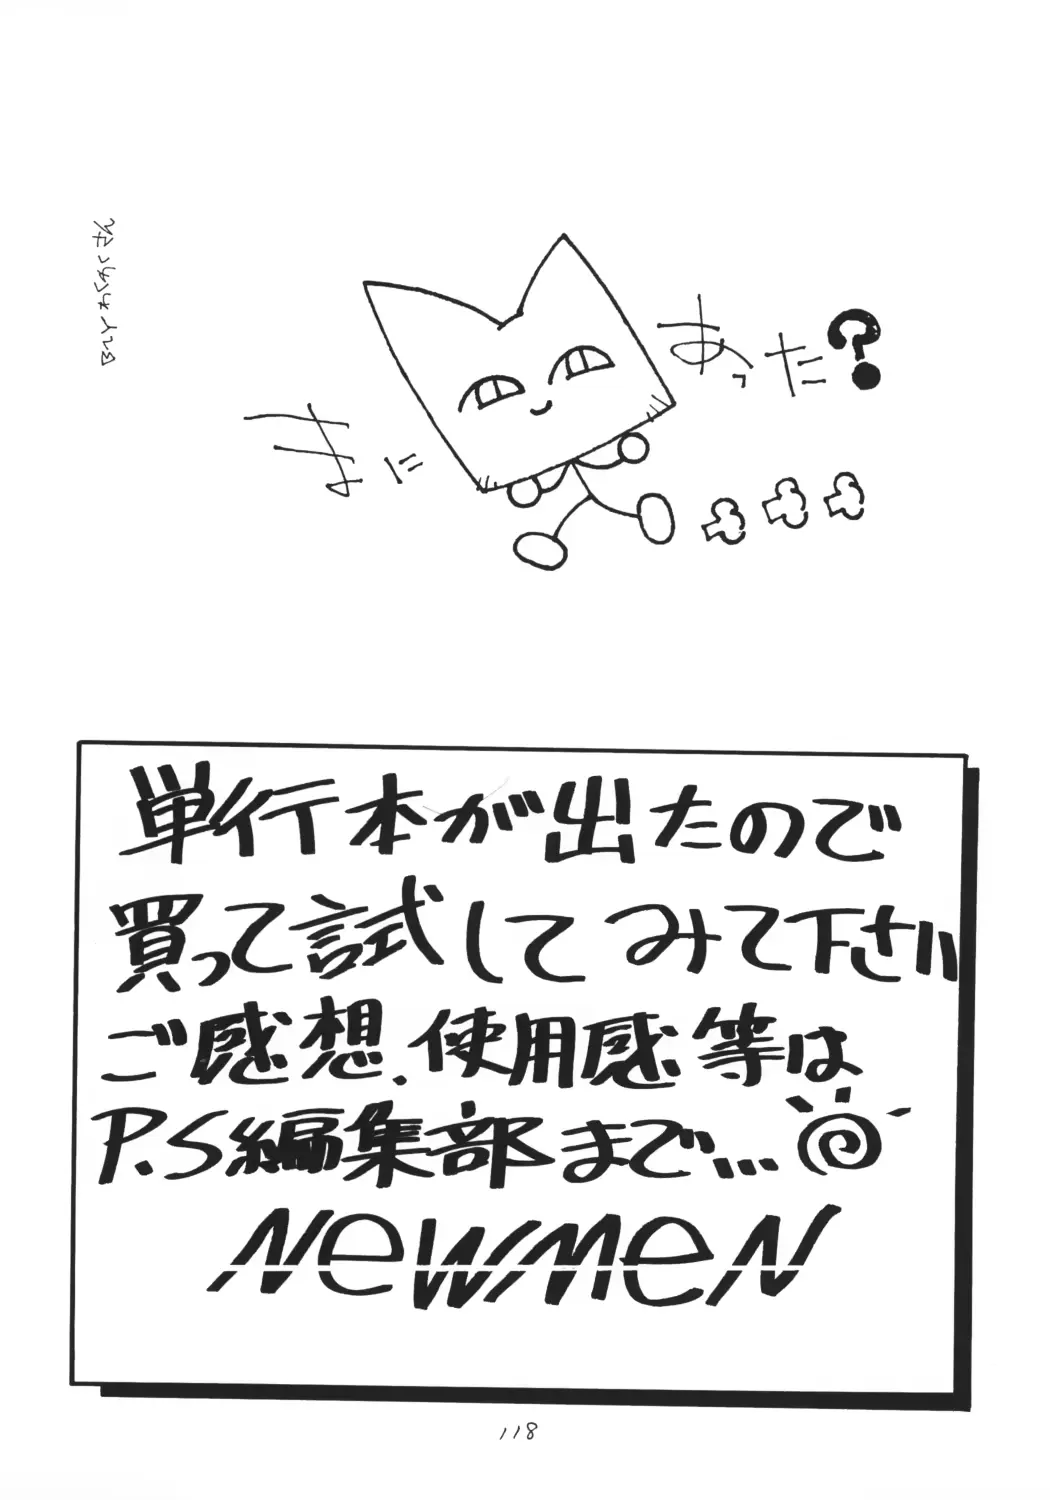 まにあった?
単行本が出たので
買って試してみて下さい
ご感想、使用感等は
P.S編集部まで...
NeWMeN
118